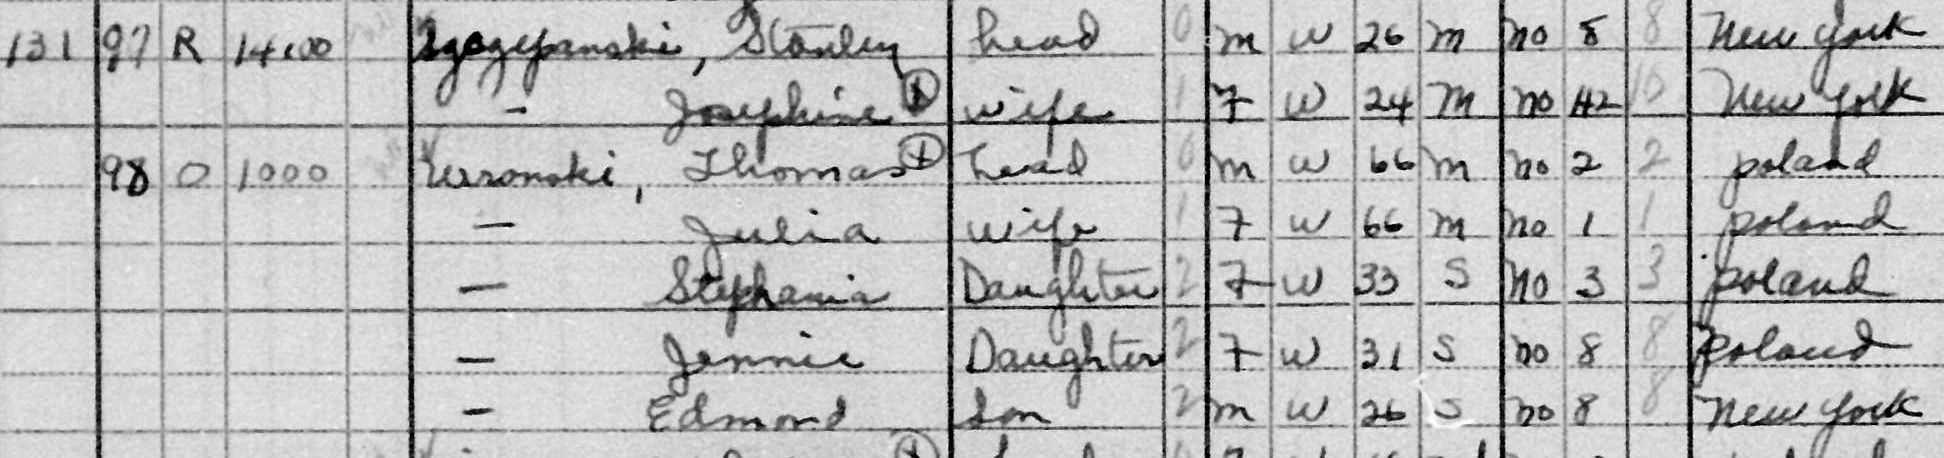 131 97 R 14.00 Szczepanski, Stanley head 0 m W 26 m no 8 8 New York
— Josephine wife 1 F W 24 m no H2 10 New York
98 O 1000 Thomas head 0 m W 66 m no 2 2 poland
— Julia wife 1 F W 66 m no 1 1 poland
— Stephania Daughter 2 F W 33 S no 3 3 poland
— Jennie Daughter 2 F W 31 S no 8 8 poland
— Edmond Son 2 m W 26 S no 8 8 New York